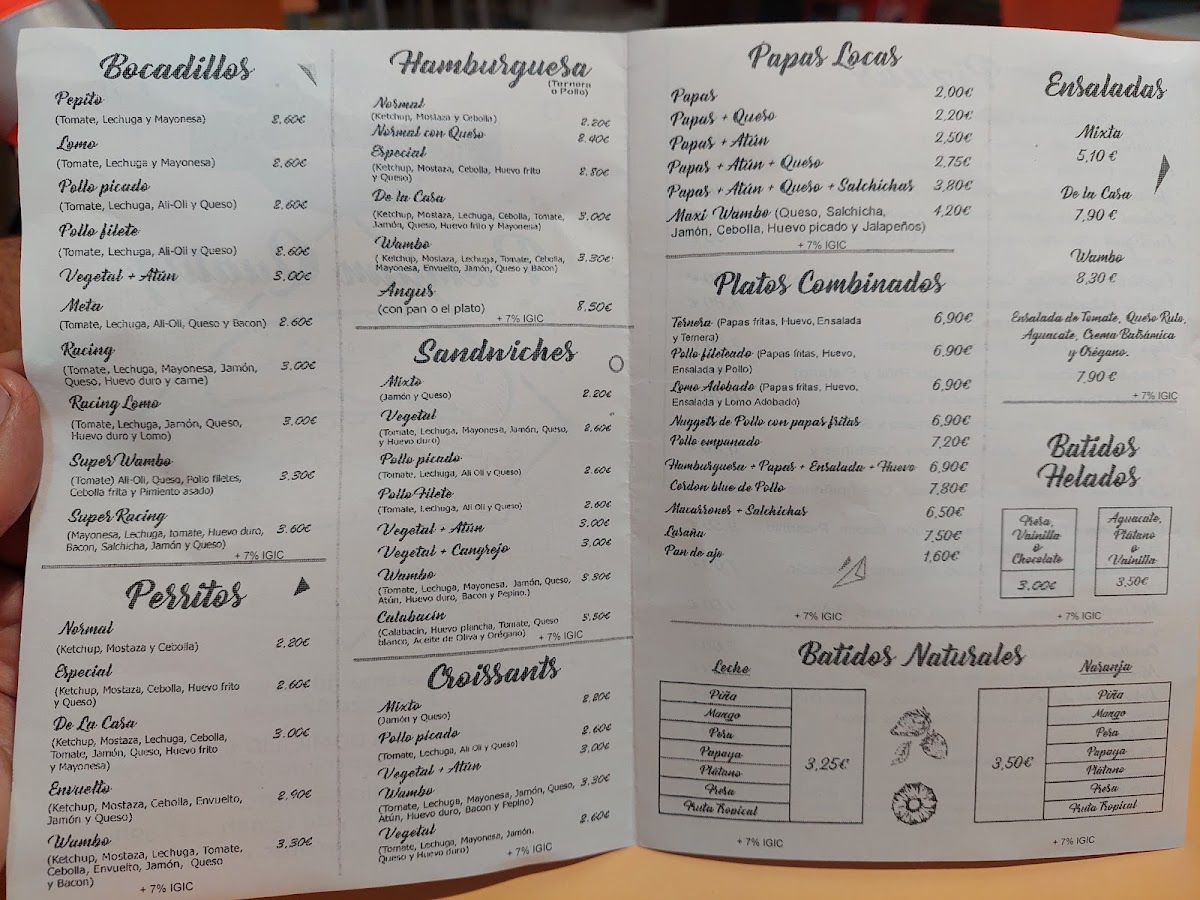 Bocadillos
Pepito
(Tomate, Lechuga y Mayonesa) 2.60€
Lomo
(Tomate, Lechuga y Mayonesa) 2.60€
Pollo picado
(Tomate, Lechuga, Ali-Oli y Queso) 2.60€
Pollo filete
(Tomate, Lechuga, Ali-Oli y Queso) 2.60€
Vegetal + Atún 3.00€
Meta
(Tomate, Lechuga, Ali-Oli, Queso y Bacon) 2.60€
Racing
(Tomate, Lechuga, Mayonesa, Jamón, 3.00€
Queso, Huevo duro y carne)
Racing Lomo
(Tomate, Lechuga, Jamón, Queso, 3.00€
Huevo duro y Lomo)
Super Wambo
(Tomate) Ali-Oli, Queso, Pollo filetes, 3.30€
Cebolla frita y Pimiento asado)
Super Racing
(Mayonesa, Lechuga, tomate, Huevo duro, 3.60€
Bacon, Salchicha, Jamón y Queso)
+ 7% IGIC
Perritos
Normal
(Ketchup, Mostaza y Cebolla) 2.20€
Especial
(Ketchup, Mostaza, Cebolla, Huevo frito 2.60€
y Queso)
De La Casa
(Ketchup, Mostaza, Lechuga, Cebolla, 3.00€
Tomate, Jamón, Queso, Huevo frito
y Mayonesa)
Envuelto
(Ketchup, Mostaza, Cebolla, Envuelto, 2.90€
Jamón y Queso)
Wambo
(Ketchup, Mostaza, Lechuga, Tomate, 3.30€
Cebolla, Envuelto, Jamón, Queso
y Bacon)
+ 7% IGIC
Hamburguesa
(Ternera
o Pollo)
Normal
(Ketchup, Mostaza y Cebolla) 2.20€
Normal con Queso 2.40€
Especial
(Ketchup, Mostaza, Cebolla, Huevo frito 2.80€
y Queso)
De la Casa
(Ketchup, Mostaza, Lechuga, Cebolla, Tomate, 3.00€
Jamón, Queso, Huevo frito y Mayonesa)
Wambo
( Ketchup, Mostaza, Lechuga, Tomate, Cebolla, 3.30€
Mayonesa, Envuelto, Jamón, Queso y Bacon)
Angus
(con pan o el plato) 8.50€
+ 7% IGIC
Sandwiches
Mixto
(Jamón y Queso) 2.20€
Vegetal
(Tomate, Lechuga, Mayonesa, Jamón, Queso, 2.60€
y Huevo duro)
Pollo picado
(Tomate, Lechuga, Ali Oli y Queso) 2.60€
Pollo Filete
(Tomate, Lechuga, Ali Oli y Queso) 2.60€
Vegetal + Atún 3.00€
Vegetal + Cangrejo 3.00€
Wambo
(Tomate, Lechuga, Mayonesa, Jamón, Queso, 3.30€
Atún, Huevo duro, Bacon y Pepino.)
Calabacín
(Calabacín, Huevo plancha, Tomate, Queso 5.50€
blanco, Aceite de Oliva y Orégano) + 7% IGIC
Croissants
Mixto 2.20€
(Jamón y Queso)
Pollo picado 2.60€
(Tomate, Lechuga, Ali Oli y Queso)
Vegetal + Atún 3.00€
Wambo
(Tomate, Lechuga, Mayonesa, Jamón, Queso, 3.30€
Atún, Huevo duro, Bacon y Pepino)
Vegetal 2.60€
(Tomate, Lechuga, Mayonesa, Jamón,
Queso y Huevo duro) + 7% IGIC
Papas Locas
Papas 2,00€
Papas + Queso 2,20€
Papas + Atún 2,50€
Papas + Atún + Queso 2,75€
Papas + Atún + Queso + Salchichas 3,80€
Maxi Wambo (Queso, Salchicha, 4,20€
Jamón, Cebolla, Huevo picado y Jalapeños)
+ 7% IGIC
Platos Combinados
Ternera (Papas fritas, Huevo, Ensalada 6,90€
y Ternera)
Pollo fileteado (Papas fritas, Huevo, 6,90€
Ensalada y Pollo)
Lomo Adobado (Papas fritas, Huevo, 6,90€
Ensalada y Lomo Adobado)
Nuggets de Pollo con papas fritas 6,90€
Pollo empanado 7,20€
Hamburguesa + Papas + Ensalada + Huevo 6,90€
Cordon blue de Pollo 7,80€
Macarrones + Salchichas 6,50€
Lasaña 7,50€
Pan de ajo 1,60€
+ 7% IGIC
Ensaladas
Mixta
5,10 €
De la Casa
7,90 €
Wambo
8,30 €
Ensalada de Tomate, Queso Rulo,
Aguacate, Crema Balsámica
y Orégano.
7,90 €
+ 7% IGIC
Batidos
Helados
Fresa,
Vainilla
o
Chocolate
3.00€
Aguacate,
Plátano
o
Vainilla
3,50€
+ 7% IGIC
Batidos Naturales
Leche
Piña
Mango
Pera
Papaya
Plátano
Fresa
Fruta Tropical
3,25€
+ 7% IGIC
Naranja
3,50€
Piña
Mango
Pera
Papaya
Plátano
Fresa
Fruta Tropical
+ 7% IGIC